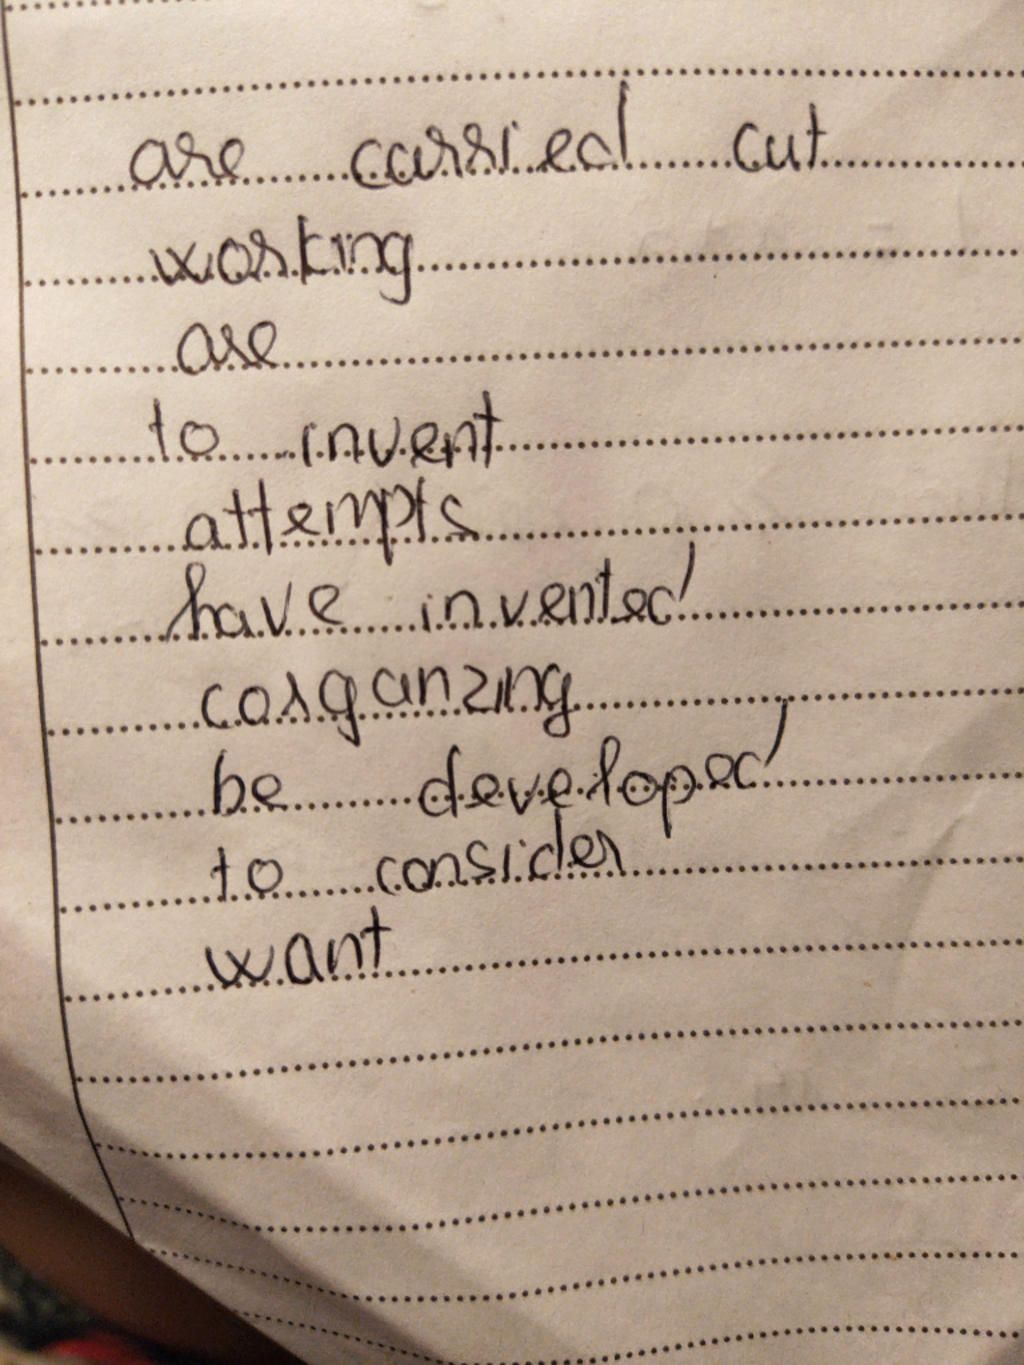 are carried out
working
are
to invent
attempts
have invented
corganzing
be developed
to consider
want